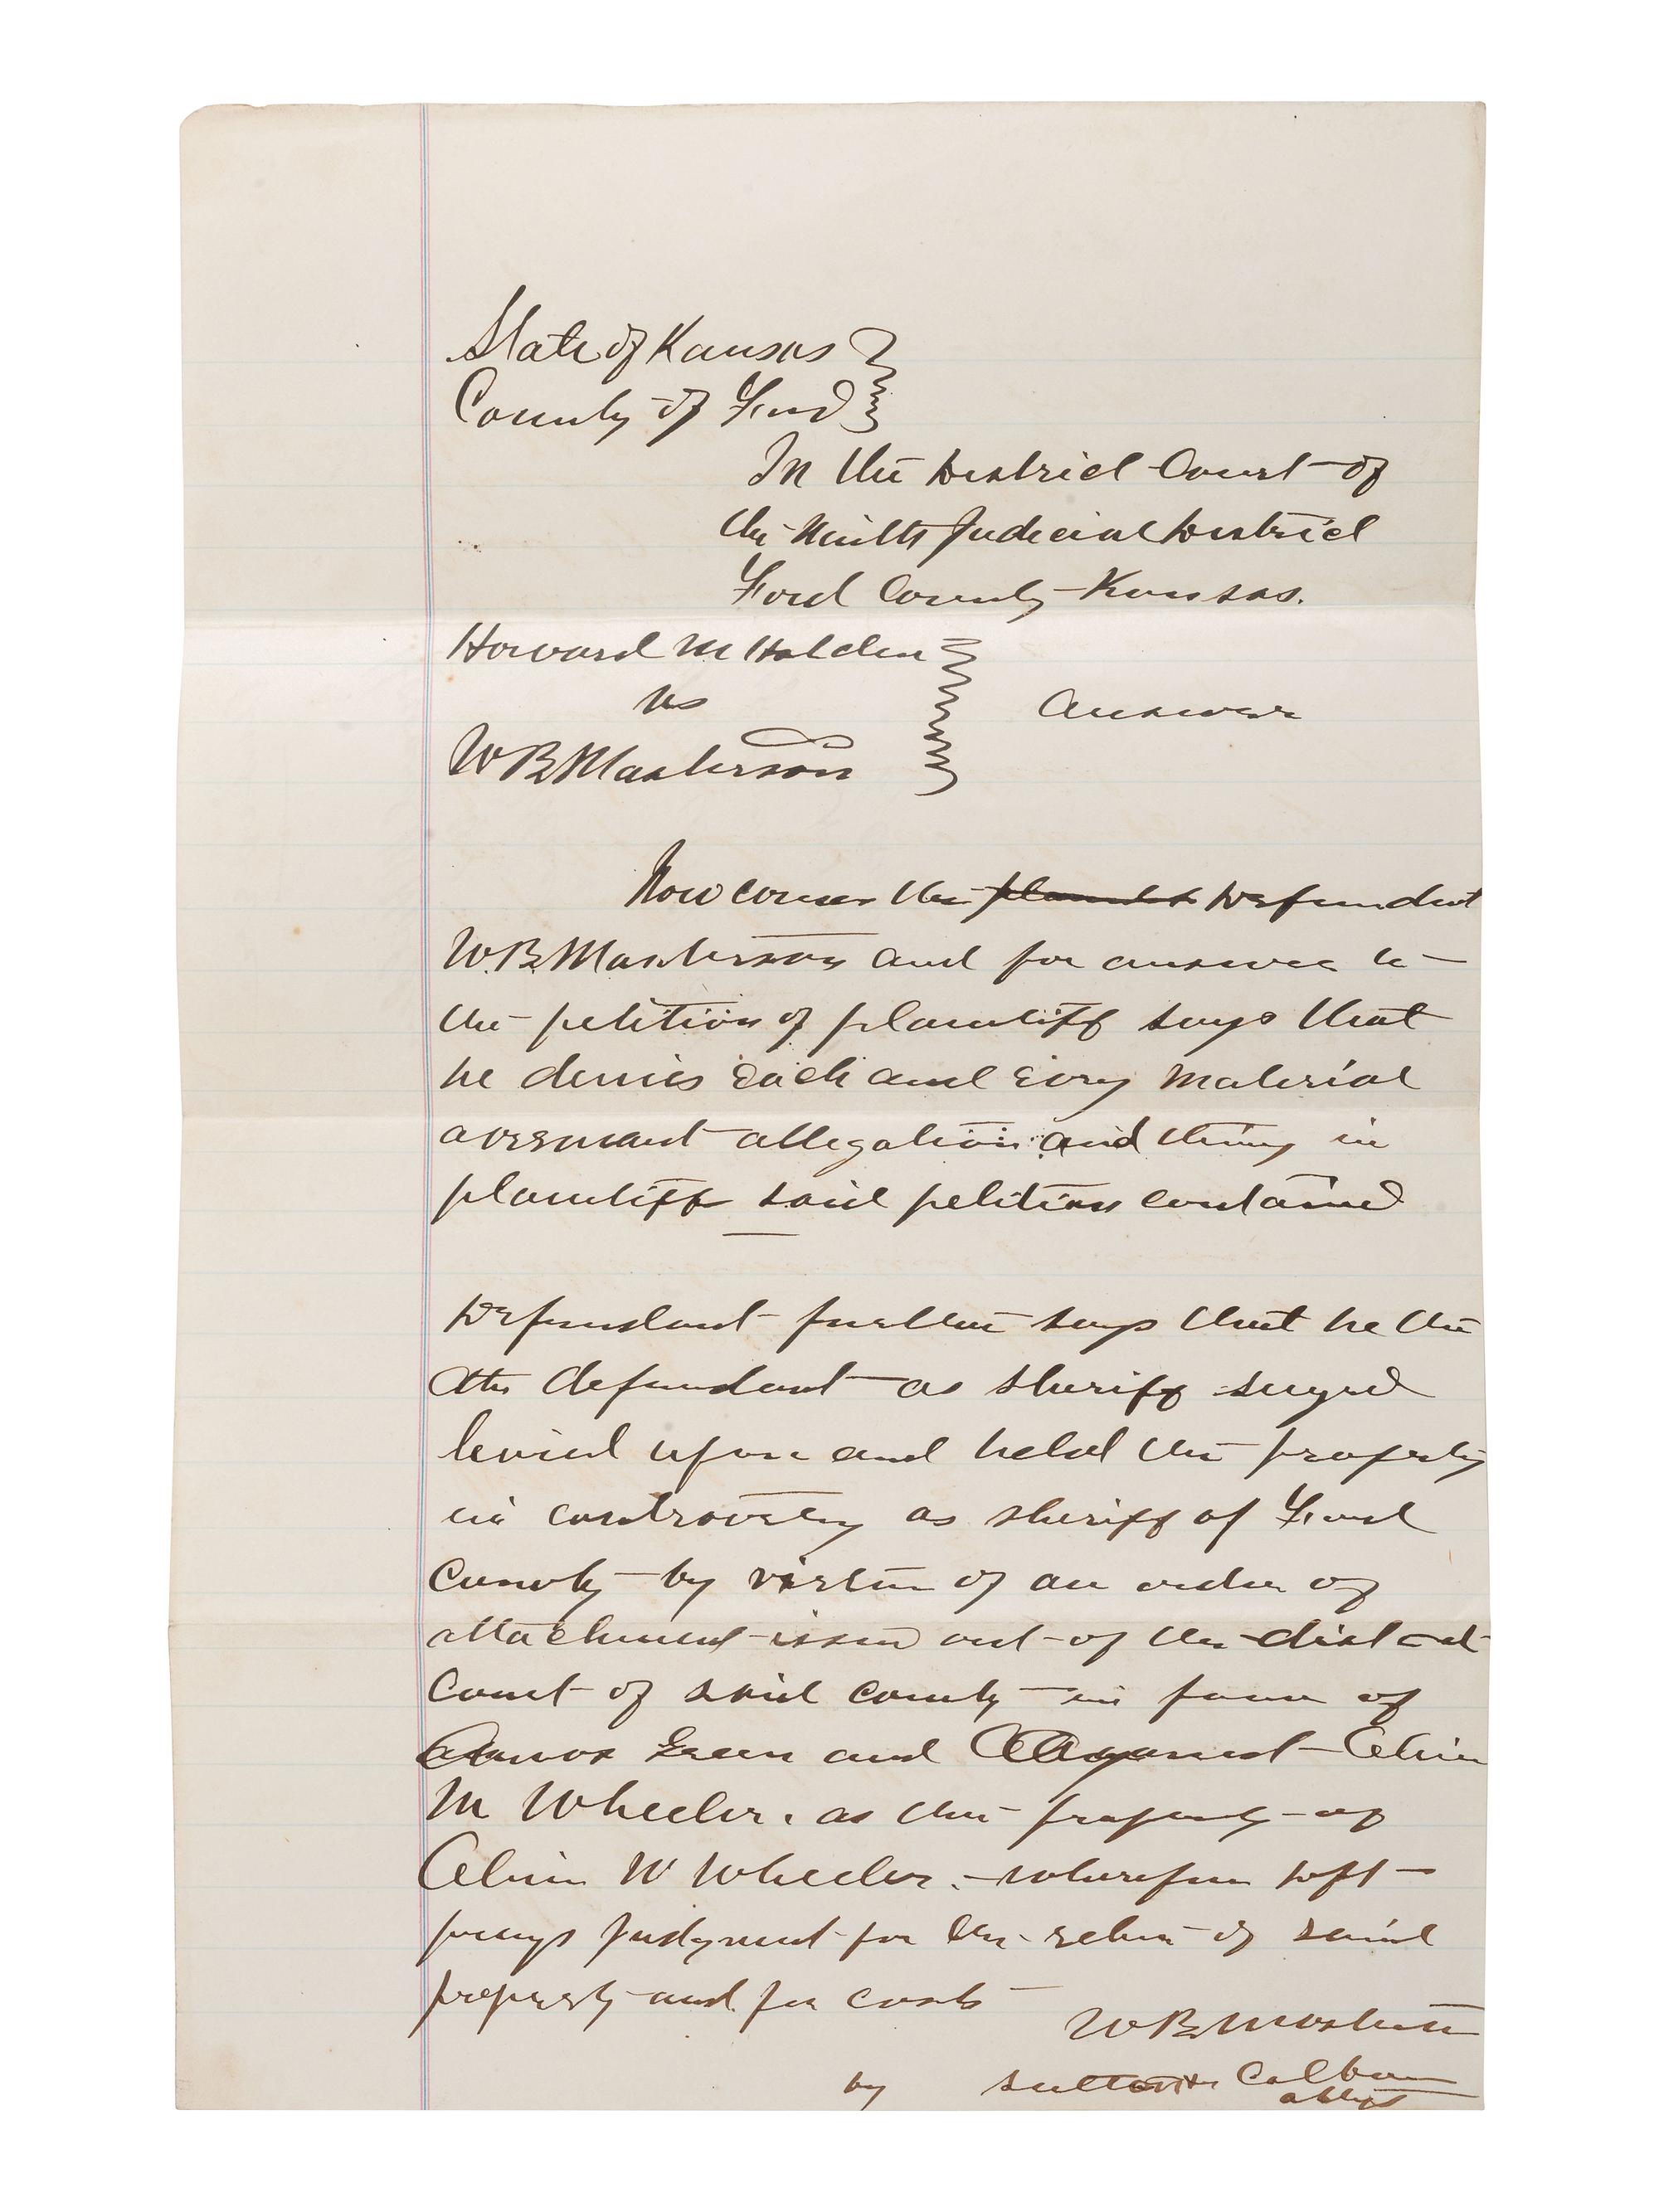 State of Kansas
County of Ford
In the District Court of
the Ninth Judicial District
Ford County Kansas.
Howard M Holden
vs
Answer
W B Masterson
Now comes the plaintiff Defendant
W.B. Masterson and for answer to
the petition of plaintiff says that
he denies Each and Evry material
averment allegation and thing in
plaintiff said petition contained
Defendant further says that he the
the defendant as sheriff seized
levied upon and held the property
in controversy as sheriff of Ford
County by virtue of an order of
attachment issued out of the district
Court of said county in favor of
Green and Alvin
M Wheeler. as the property of
Alvin W Wheeler. wherefore Deft
prays Judgment for the return of said
property and for costs
W B Masterson
by Sutton & Colborn
attys